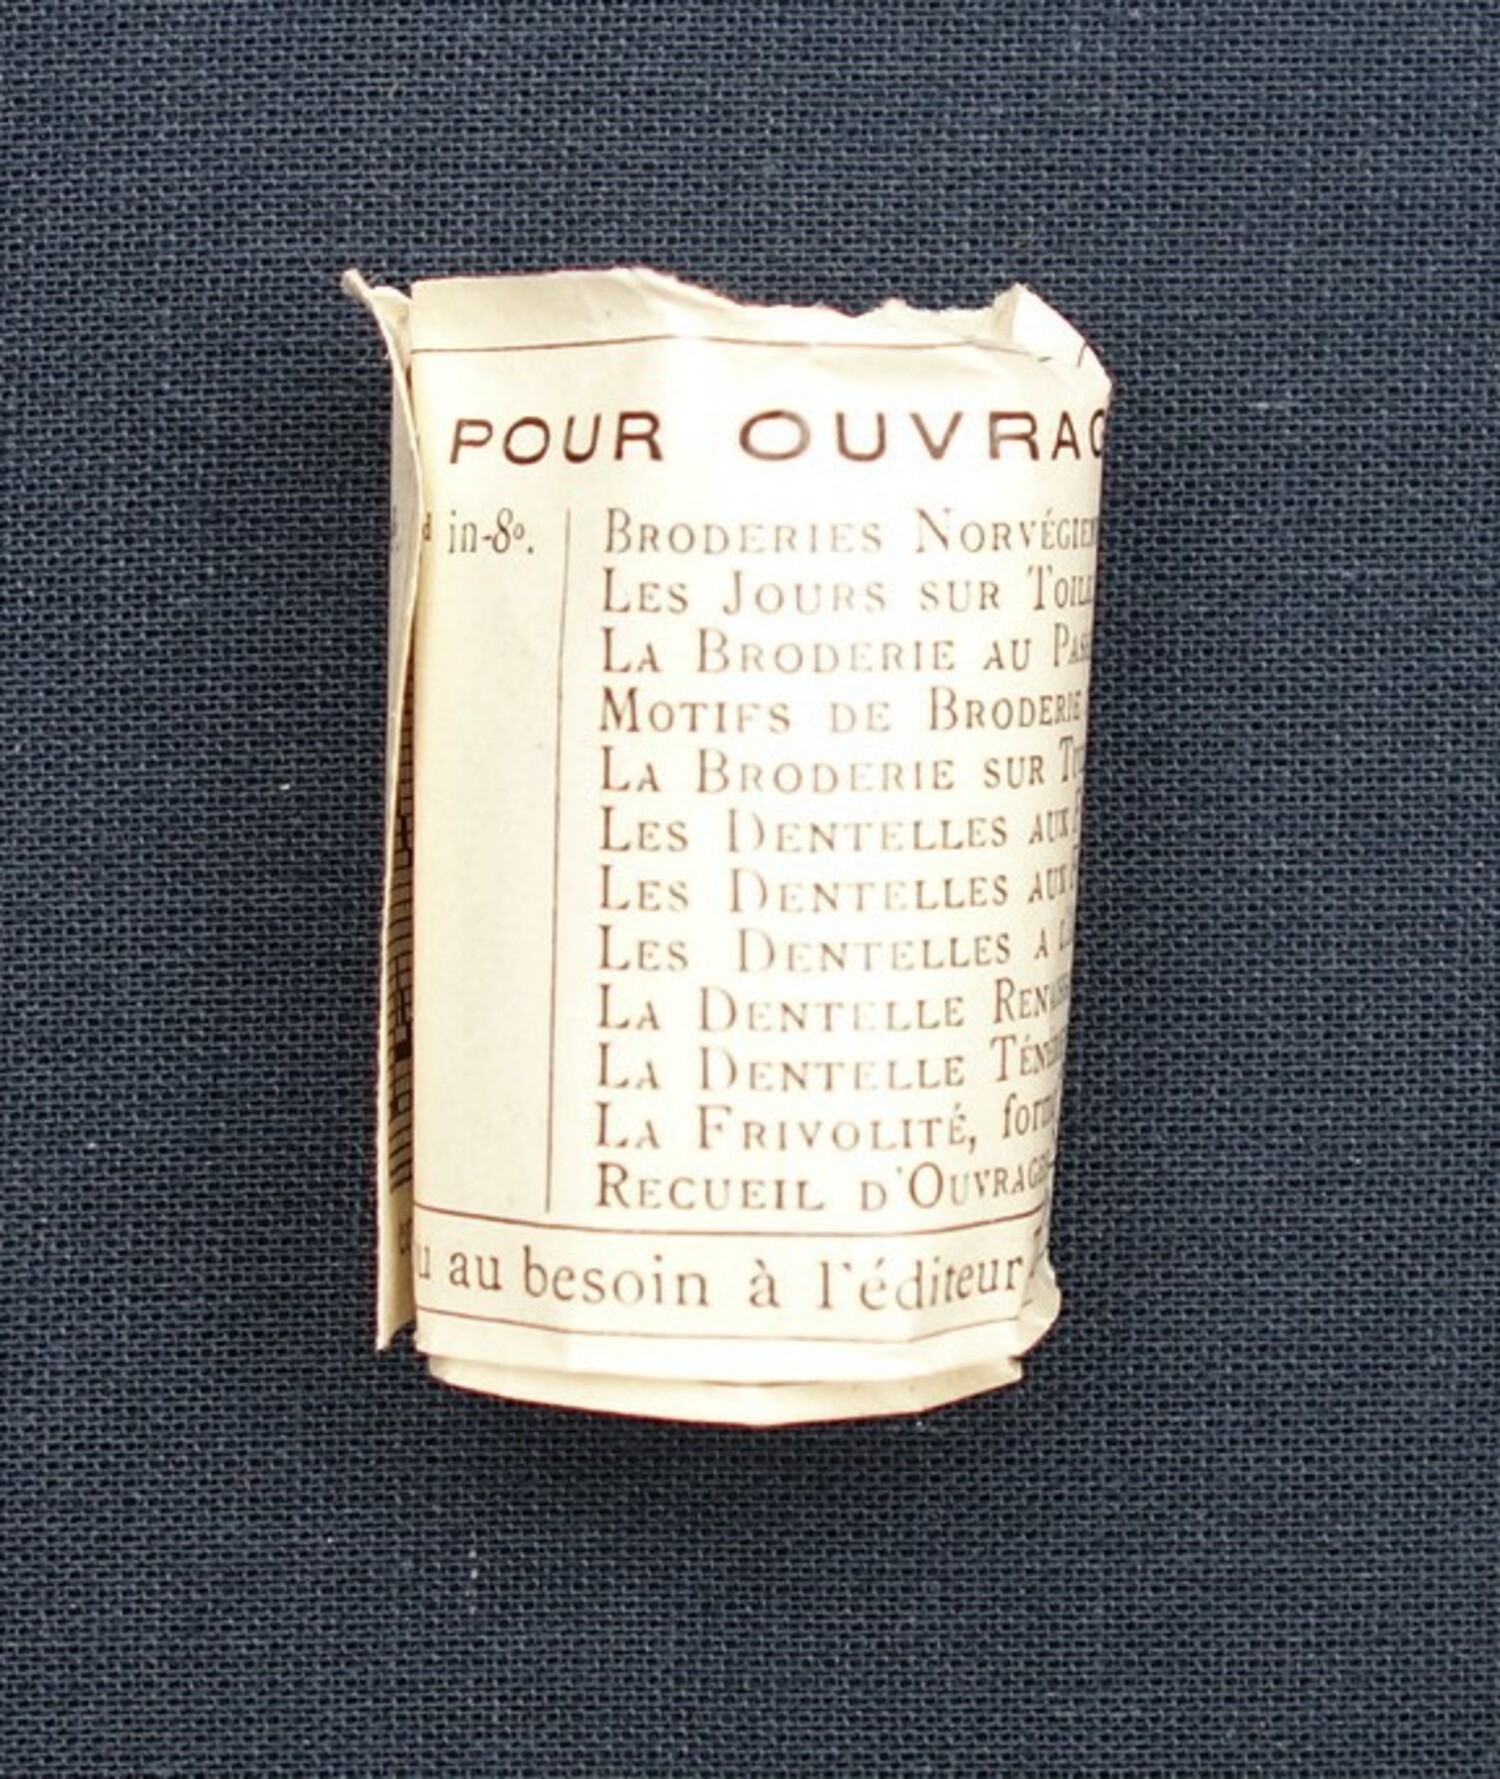 POUR OUVRAG
in-8º.
BRODERIES NORVÉGIEN
LES JOURS SUR TOIL
LA BRODERIE AU PAS
MOTIFS DE BRODERIE
LA BRODERIE SUR TU
LES DENTELLES AUX
LES DENTELLES AUX
LES DENTELLES A
LA DENTELLE RENAIS
LA DENTELLE TÉN
LA FRIVOLITÉ, form
RECUEIL D'OUVRAGES
u au besoin à l'éditeur